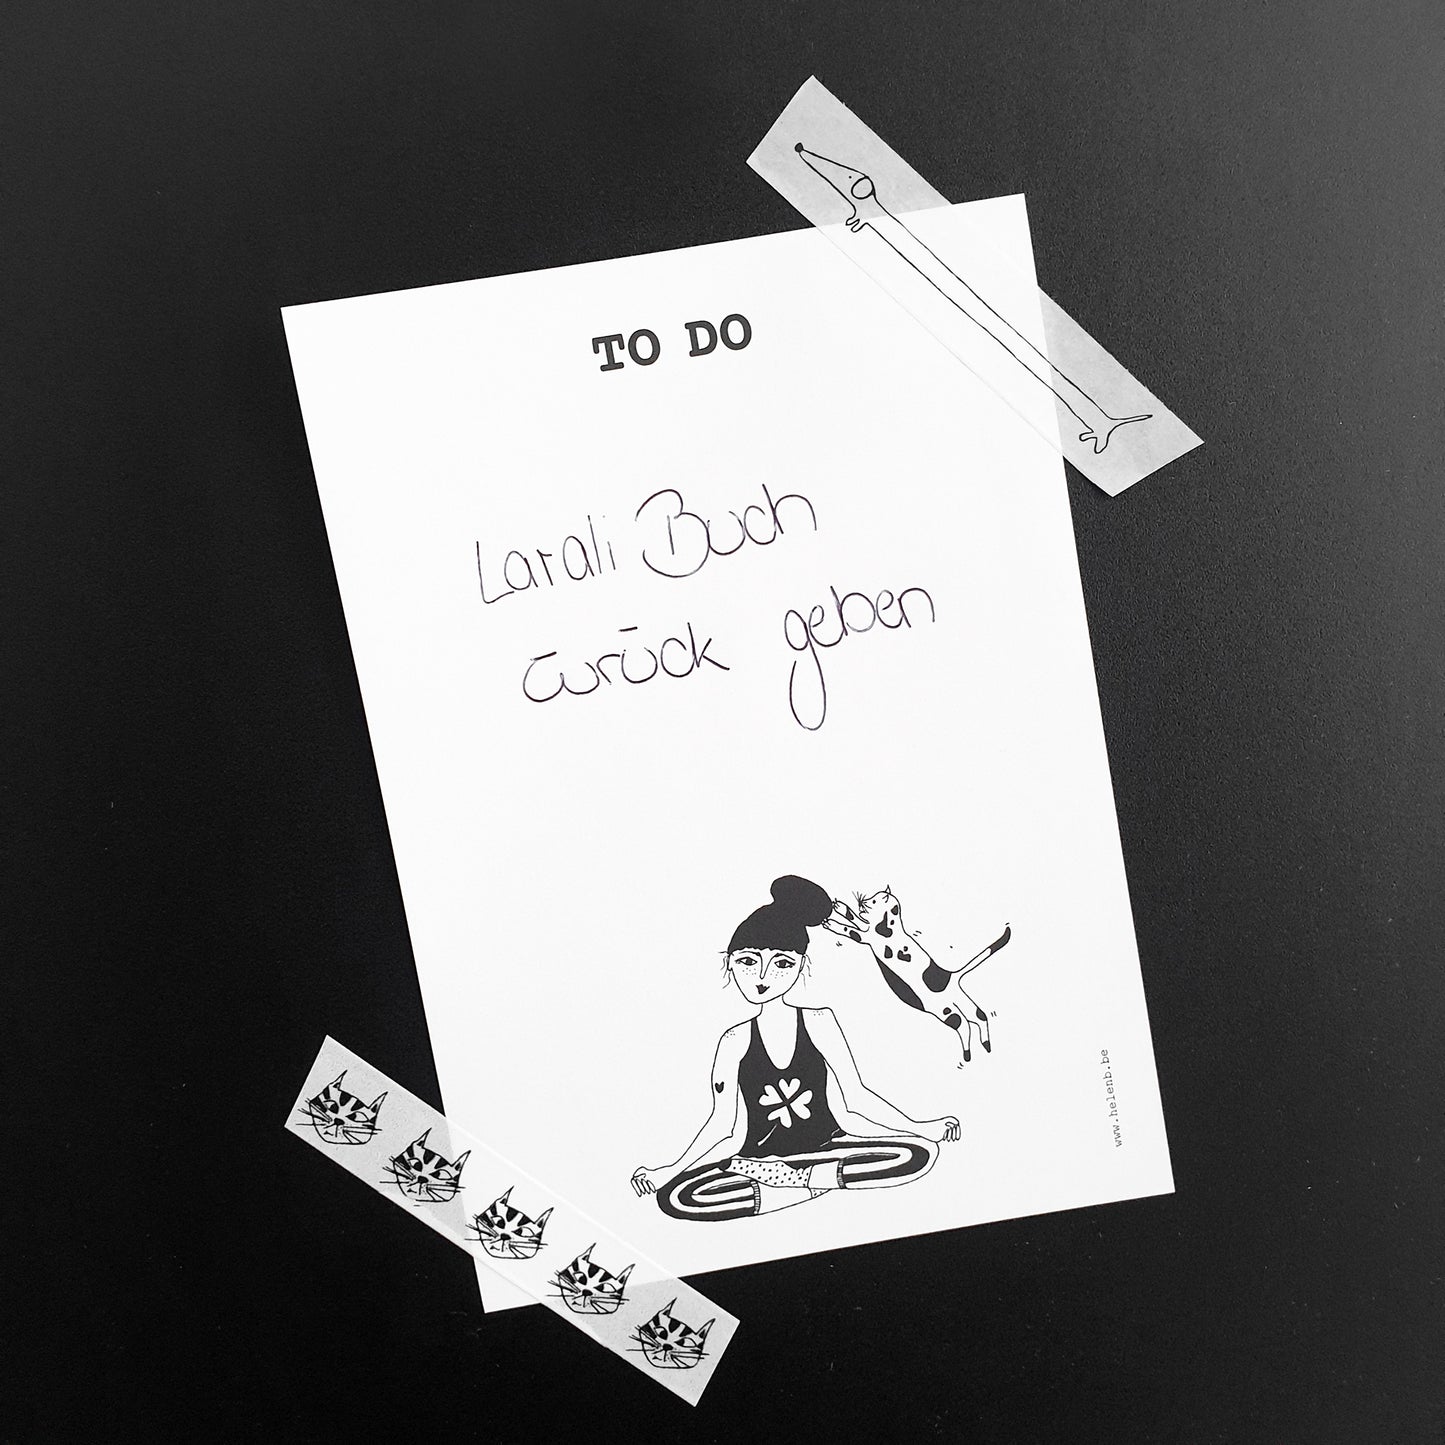 TO DO
Larali Buch
zurück geben
www.helenb.be